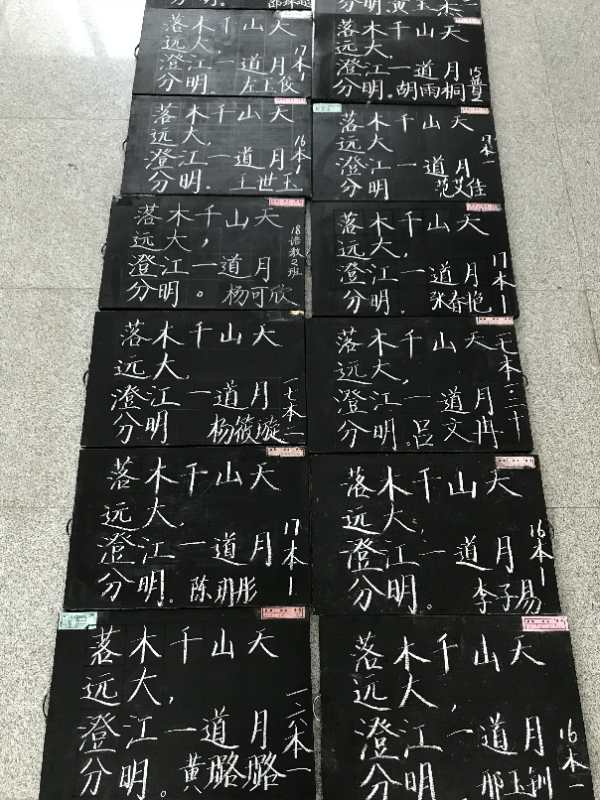 落木千山天
远大,
澄江一道月
分明.
17本1
左玉俊
落木千山天
远大,
澄江一道月
分明.
胡雨桐
落木千山天
远大,
澄江一道月
分明.
16本1
王世玉
落木千山天
远大,
澄江一道月
分明
范艾佳
落木千山天
远大,
澄江一道月
分明。
18语教2班
杨可欣
落木千山天
远大,
澄江一道月
分明.
17本1
落木千山天
远大,
澄江一道月
分明
一七本二
杨筱璇
落木千山天
远大,
澄江一道月
分明.
吕文冉
落木千山天
远大,
澄江一道月
分明.
17本1
落木千山天
远大,
澄江一道月
分明。
16本1
李子易
落木千山天
远大,
澄江一道月
分明。
一六本一
黄璐璐
落木千山天
远大,
澄江一道月
分明。
16本一
邢玉钊